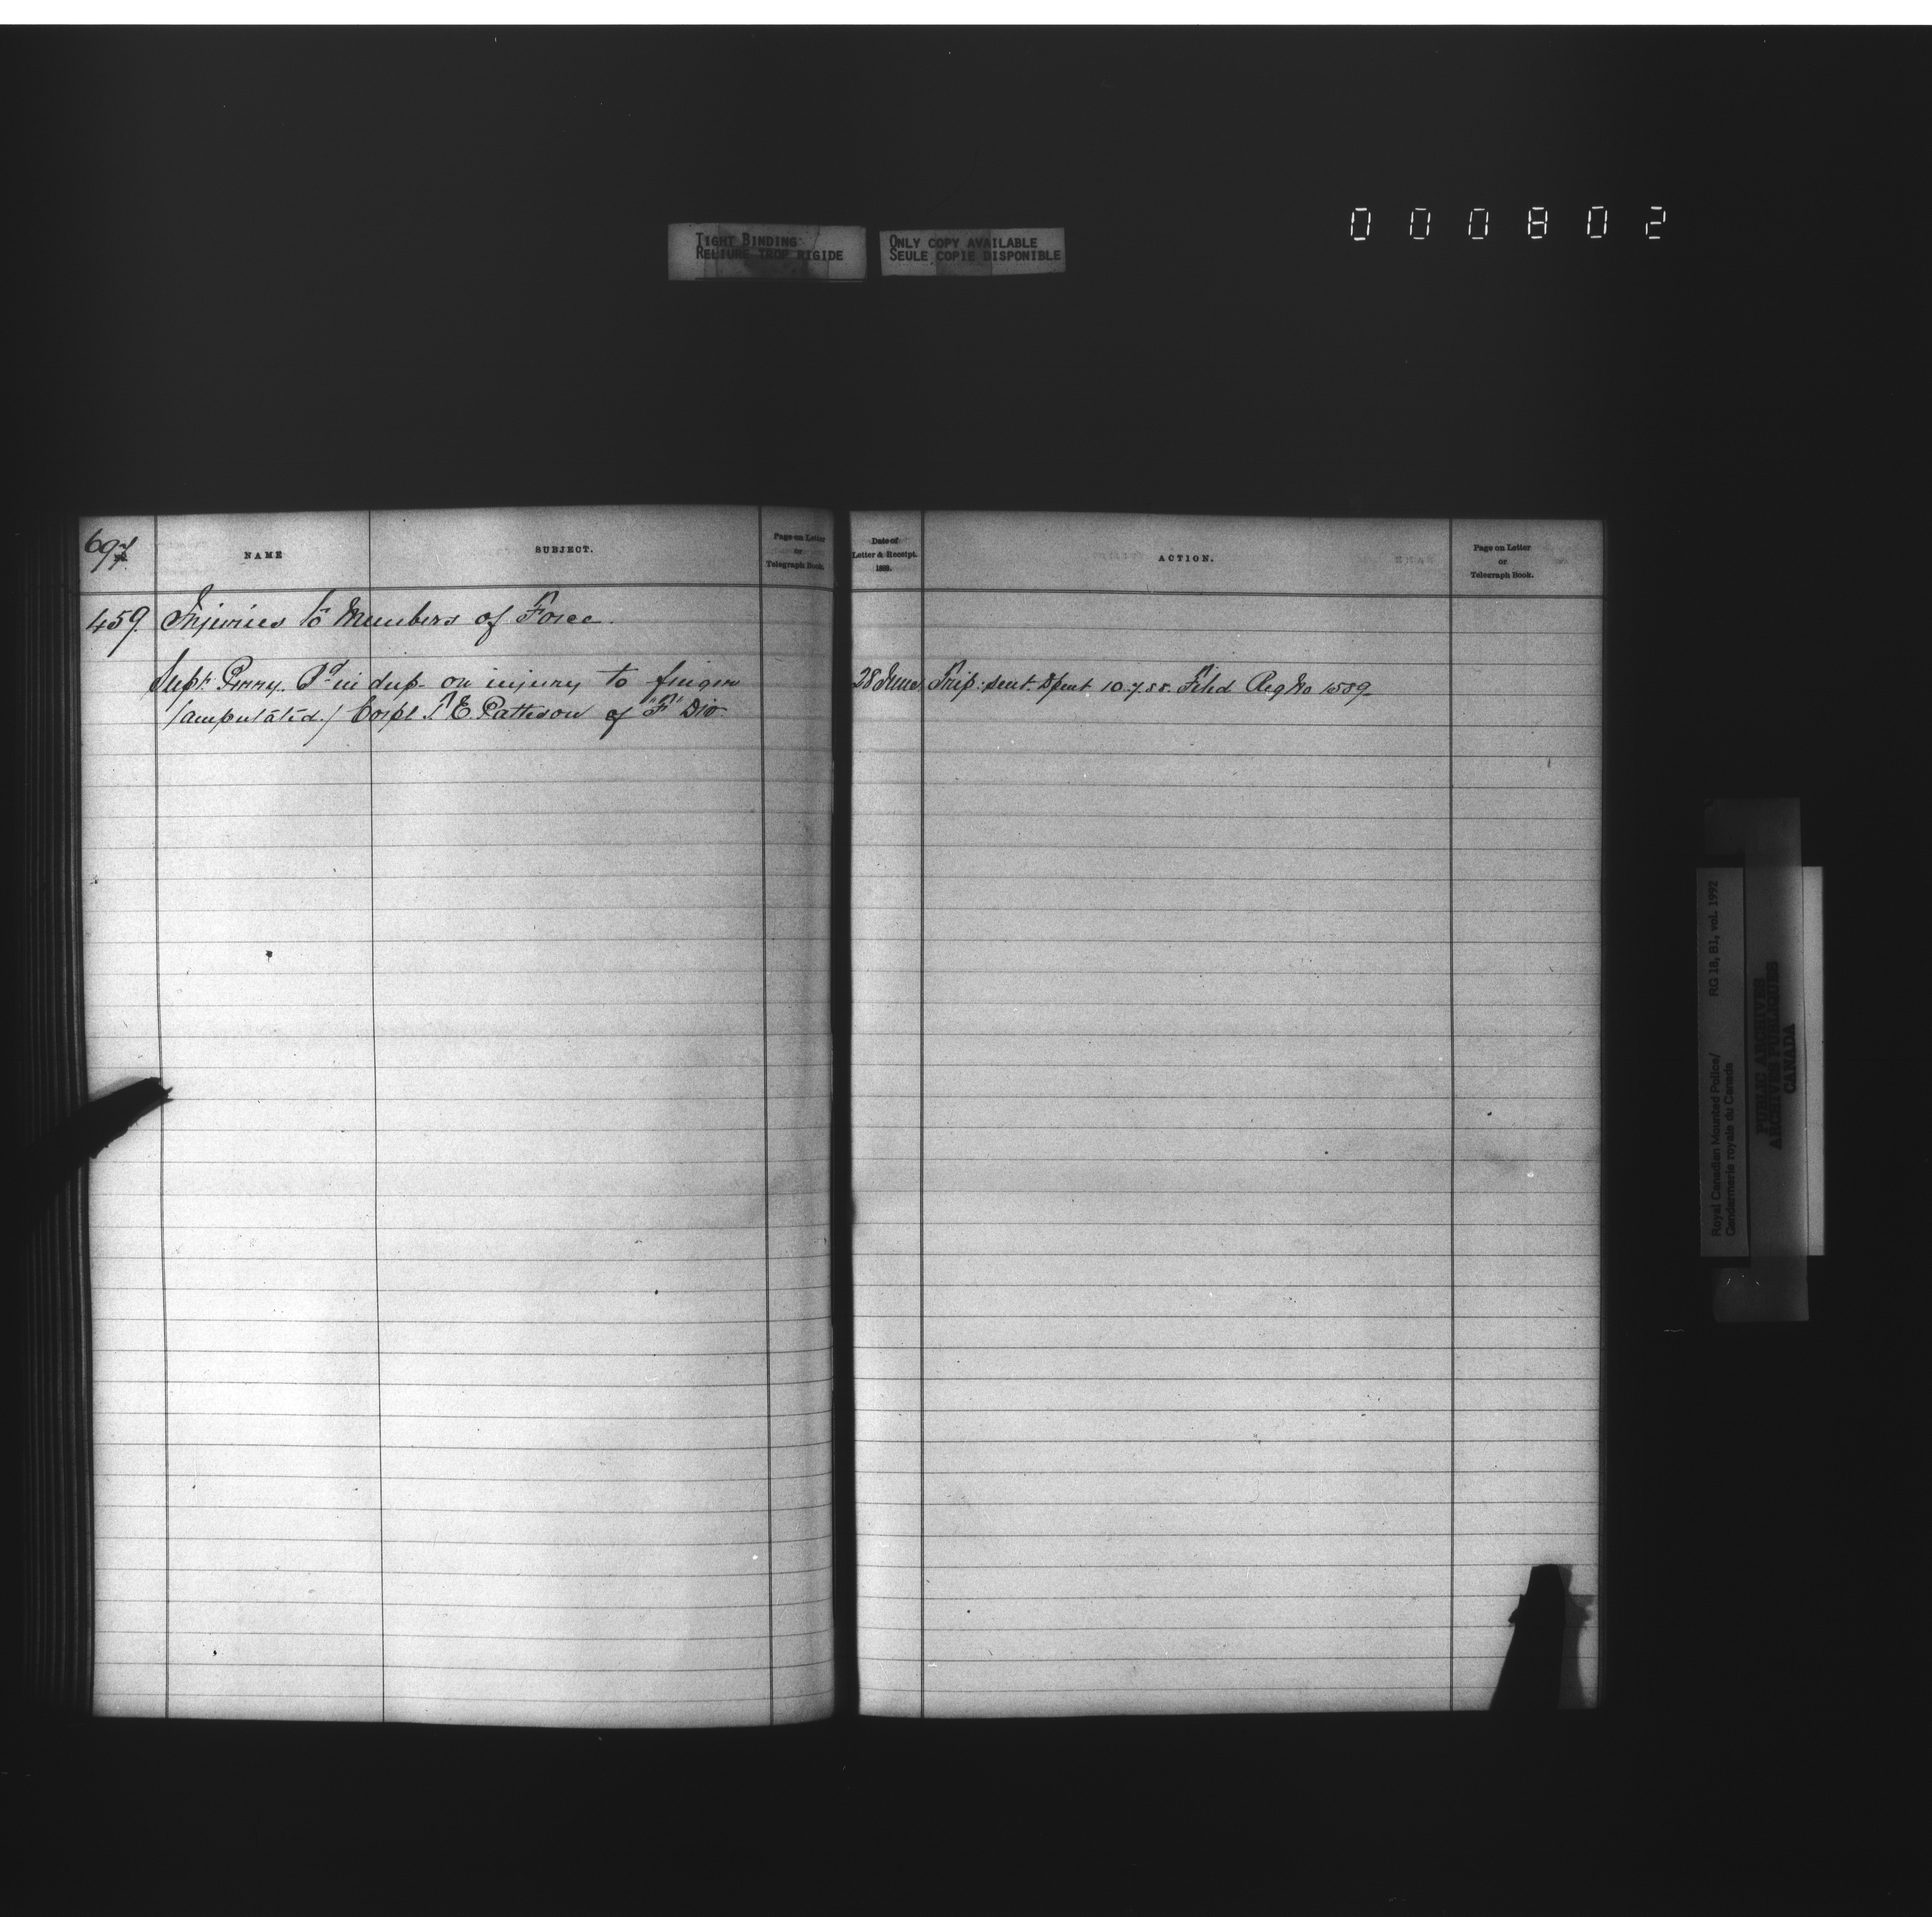 000802
TIGHT BINDING
RELIURE TROP RIGIDE
ONLY COPY AVAILABLE
SEULE COPIE DISPONIBLE
697
No.
NAME
SUBJECT.
Page on Letter
or
Telegraph Book.
459. Injuries to Members of Force.
Supt. Perry. Bd in dup. on injury to finger
(amputated.) Corpl. E. Pattison of "F" Div
Date of
Letter & Receipt.
1888.
ACTION.
Page on Letter
or
Telegraph Book.
28 June. Trip. sent. Dpent 10.7.88. Filed Reg No 1589.
Royal Canadian Mounted Police/
Gendarmerie royale du Canada
RG 18, B1, vol. 1992
PUBLIC ARCHIVES
ARCHIVES PUBLIQUES
CANADA